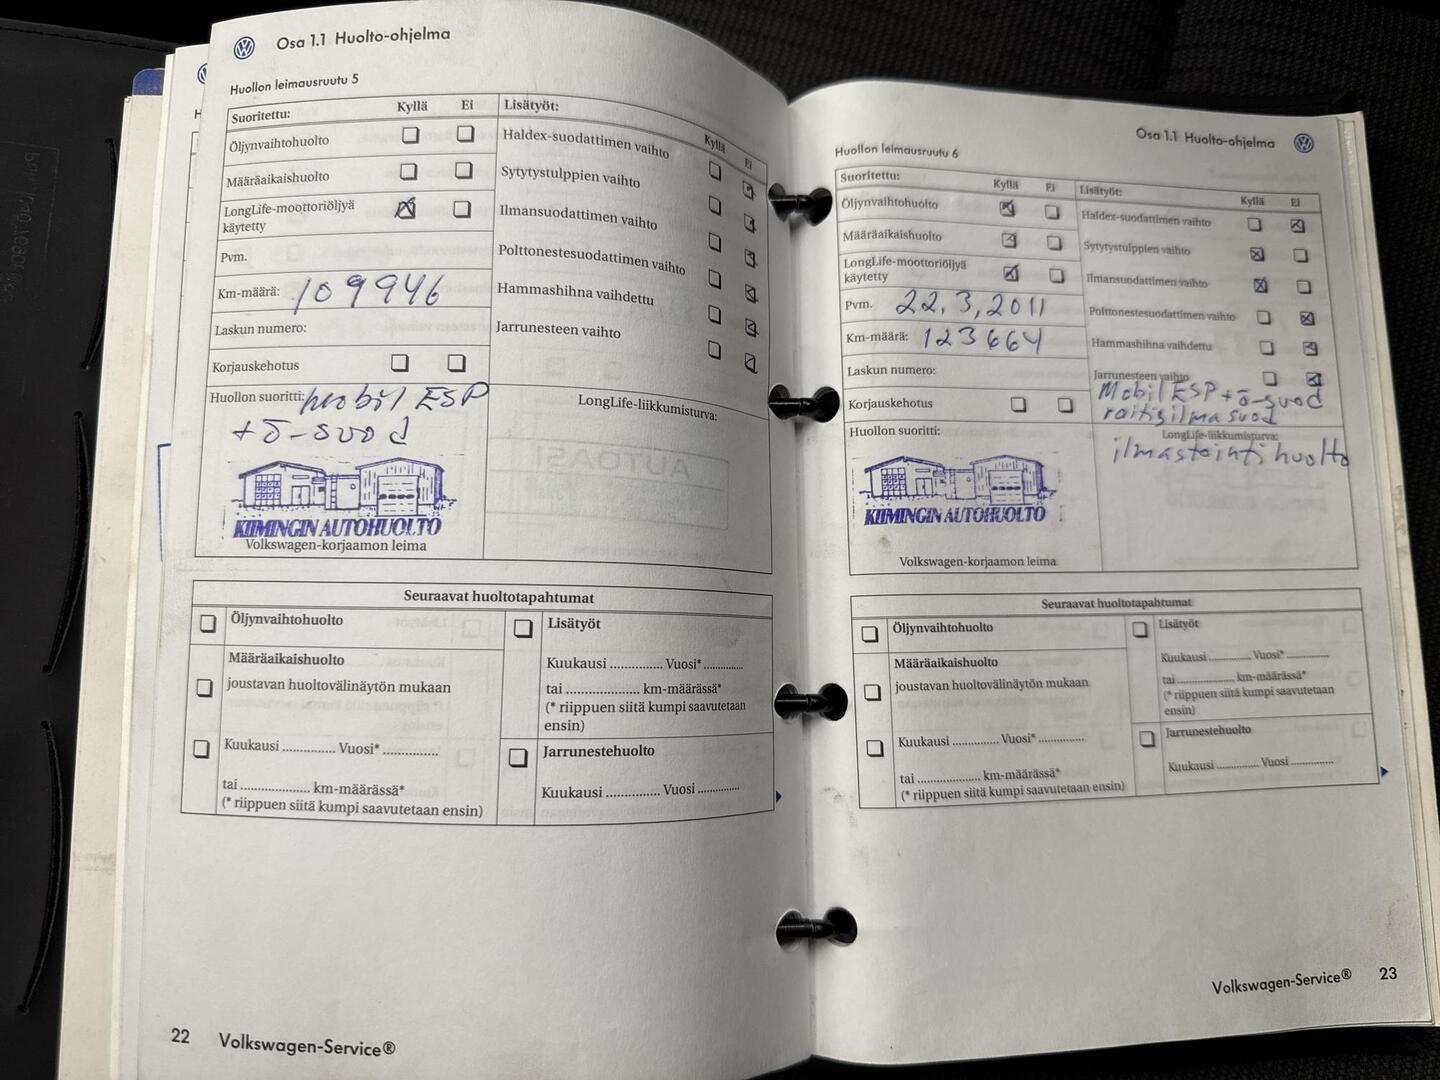 Osa 1.1 Huolto-ohjelma
Huollon leimausruutu 5
Suoritettu: Kyllä Ei
Öljynvaihtohuolto
Määräaikaishuolto
LongLife-moottoriöljyä
käytetty
Pvm.
Km-määrä: 109946
Laskun numero:
Korjauskehotus
Huollon suoritti: Mobil ESP
+ ö-suod
KIIMINGIN AUTOHUOLTO
Volkswagen-korjaamon leima
Lisätyöt:
Kyllä Ei
Haldex-suodattimen vaihto
Sytytystulppien vaihto
Ilmansuodattimen vaihto
Polttonestesuodattimen vaihto
Hammashihna vaihdettu
Jarrunesteen vaihto
LongLife-liikkumisturva:
AUTOASI
Seuraavat huoltotapahtumat
Öljynvaihtohuolto
Määräaikaishuolto
joustavan huoltovälinäytön mukaan
Kuukausi .............. Vuosi* ..............
tai .................... km-määrässä*
(* riippuen siitä kumpi saavutetaan ensin)
Lisätyöt
Kuukausi .............. Vuosi* ..............
tai .................... km-määrässä*
(* riippuen siitä kumpi saavutetaan
ensin)
Jarrunestehuolto
Kuukausi .............. Vuosi ..............
22 Volkswagen-Service®
Osa 1.1 Huolto-ohjelma
Huollon leimausruutu 6
Suoritettu: Kyllä Ei
Öljynvaihtohuolto
Määräaikaishuolto
LongLife-moottoriöljyä
käytetty
Pvm. 22.3.2011
Km-määrä: 123664
Laskun numero:
Korjauskehotus
Huollon suoritti:
KIIMINGIN AUTOHUOLTO
Volkswagen-korjaamon leima
Lisätyöt:
Kyllä Ei
Haldex-suodattimen vaihto
Sytytystulppien vaihto
Ilmansuodattimen vaihto
Polttonestesuodattimen vaihto
Hammashihna vaihdettu
Jarrunesteen vaihto
Mobil ESP + ö-suod
raitisilmasuod
LongLife-liikkumisturva:
ilmastointihuolto
Seuraavat huoltotapahtumat
Öljynvaihtohuolto
Määräaikaishuolto
joustavan huoltovälinäytön mukaan
Kuukausi .............. Vuosi* ..............
tai .................... km-määrässä*
(* riippuen siitä kumpi saavutetaan ensin)
Lisätyöt
Kuukausi .............. Vuosi* ..............
tai .................... km-määrässä*
(* riippuen siitä kumpi saavutetaan
ensin)
Jarrunestehuolto
Kuukausi .............. Vuosi ..............
Volkswagen-Service® 23